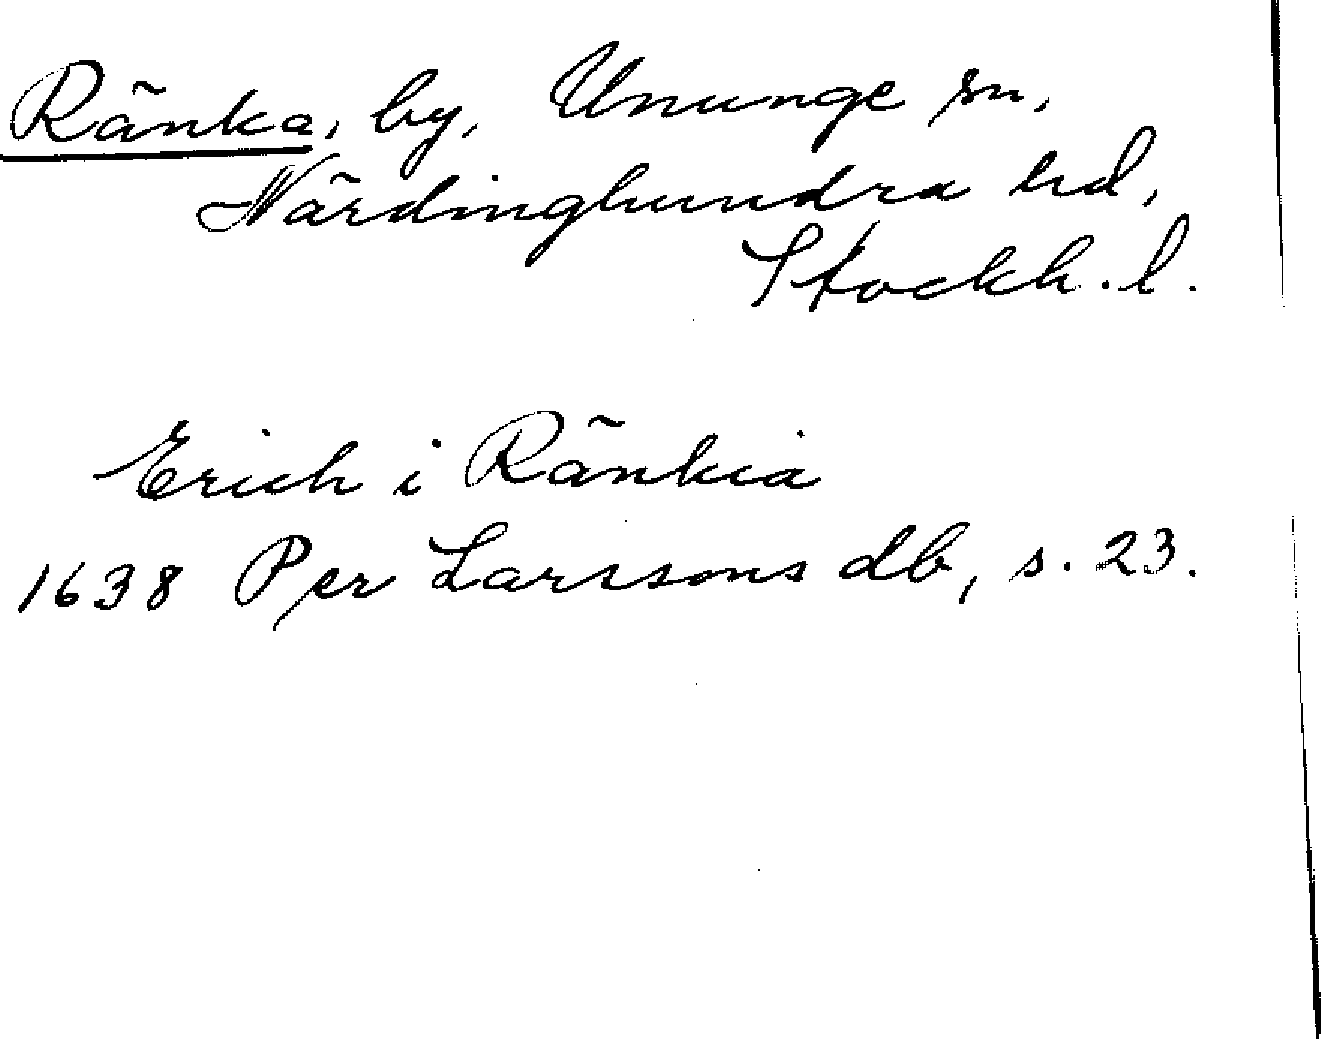 Ränka, by, Ununge sn,
Närdinghundra hd,
Stockh. l.
Erich i Ränkia
1638 Per Larssons db, s. 23.